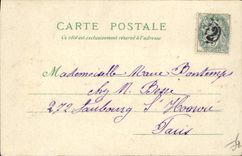 CARTE POSTALE
Ce côté est exclusivement réservé à l'adresse
Mademoiselle Marie Bontemps
chez M. Besse
272 faubourg St Honoré
Paris